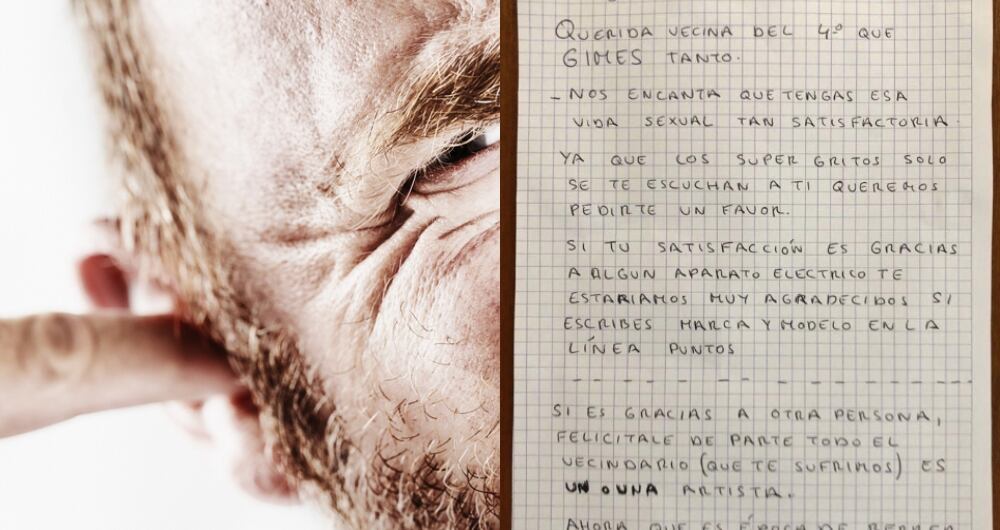 QUERIDA VECINA DEL 4º QUE
GIMES TANTO.
- NOS ENCANTA QUE TENGAS ESA
VIDA SEXUAL TAN SATISFACTORIA.
YA QUE LOS SUPER GRITOS SOLO
SE TE ESCUCHAN A TI QUEREMOS
PEDIRTE UN FAVOR.
SI TU SATISFACCIÓN ES GRACIAS
A ALGUN APARATO ELECTRICO TE
ESTARIAMOS MUY AGRADECIDOS SI
ESCRIBES MARCA Y MODELO EN LA
LÍNEA PUNTOS
SI ES GRACIAS A OTRA PERSONA,
FELICITALE DE PARTE TODO EL
VECINDARIO (QUE TE SUFRIMOS) ES
UN O UNA ARTISTA.
AHORA QUE ES ÉPOCA DE